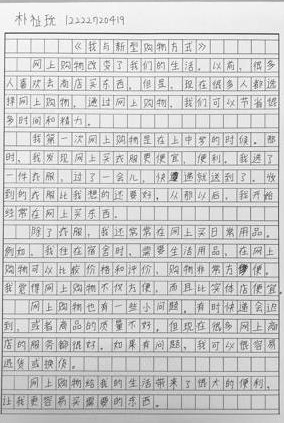 朴祉玧 12222720419
《我与新型购物方式》
网上购物改变了我们的生活。以前，很多
人喜欢去商店买东西。但是，现在很多人都选
择网上购物。通过网上购物，我们可以节省很
多时间和精力。
我第一次网上购物是在上中学的时候。那
时，我发现网上买衣服更便宜，便利。我选了
一件衣服，过了一会儿，快递就送到了。收
到的衣服比我想的还要好，从那以后，我开始
经常在网上买东西。
除了衣服，我还常常在网上买日常用品。
例如，我住在宿舍时，需要生活用品，在网上
购物可以比较价格和评价，购物非常方便。
我觉得网上购物不仅方便，而且比实体店便宜。
网上购物也有一些小问题。有时快递会迟
到，或者商品的质量不好。但现在很多网上商
店的服务都很好，如果有问题，我可以很容易
退货或换货。
网上购物给我的生活带来了很大的便利，
让我更容易买需要的东西。